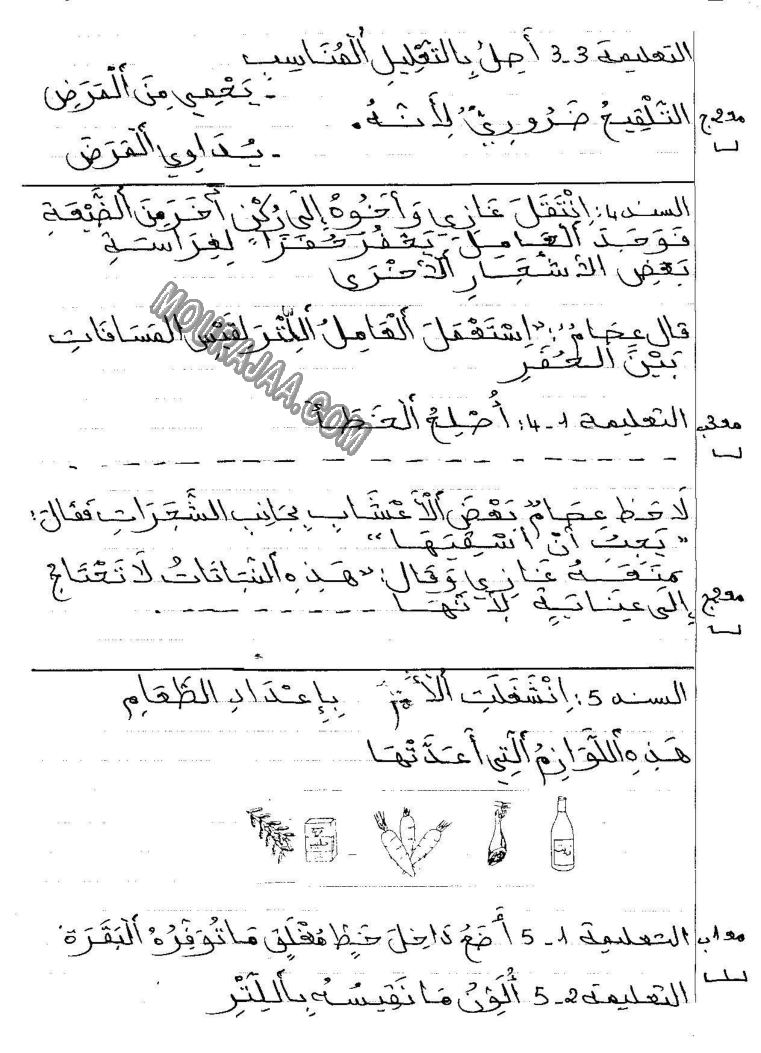 التعليمة 3-3 أَصِلُ بِالتَّعْلِيلِ الْمُنَاسِبِ
- يَحْمِي مِنَ الْمَرَضِ
مع2ج التَّلْقِيحُ ضَرُورِيٌّ لِأَنَّهُ.
- يُدَاوِي الْمَرَضَ
السند4: اِنْتَقَلَ غَازِي وَأَخُوهُ إِلَى رُكْنٍ آخَرَ مِنَ الضَّيْعَةِ
فَوَجَدَ الْعَامِلَ يَحْفُرُ حُفَرًا لِغِرَاسَةِ
بَعْضِ الأَشْجَارِ الْأُخْرَى
قال عِصَامٌ: "اِسْتَعْمَلَ الْعَامِلُ اللِّتْرَ لِقَيْسِ الْمَسَافَاتِ
بَيْنَ الْحُفَرِ
مع3ب التعليمة 1-4: أُصْلِحُ الْخَطَأَ
لَاحَظَ عِصَامٌ بَعْضَ الْأَعْشَابِ بِجَانِبِ الشَّجَرَاتِ فَقَالَ:
"يَجِبُ أَنْ أَسْقِيَهَا"
مَنَعَهُ غَازِي وَقَالَ: "هَذِهِ النَّبَاتَاتُ لَا تَحْتَاجُ
مع2ج إِلَى عِنَايَةٍ لِأَنَّهَا
السند 5: اِنْشَغَلَتِ الْأُمُّ بِإِعْدَادِ الطَّعَامِ
هَذِهِ اللَّوَازِمُ الَّتِي أَعَدَّتْهَا
زيت
حليب
مع1ب التعليمة 1-5 أَضَعُ دَاخِلَ خَطٍّ مُغْلَقٍ مَا تُوَفِّرُهُ الْبَقَرَةُ
التعليمة 2-5 أُلَوِّنُ مَا نَقِيسُهُ بِاللِّتْرِ
MOURAJAA.COM